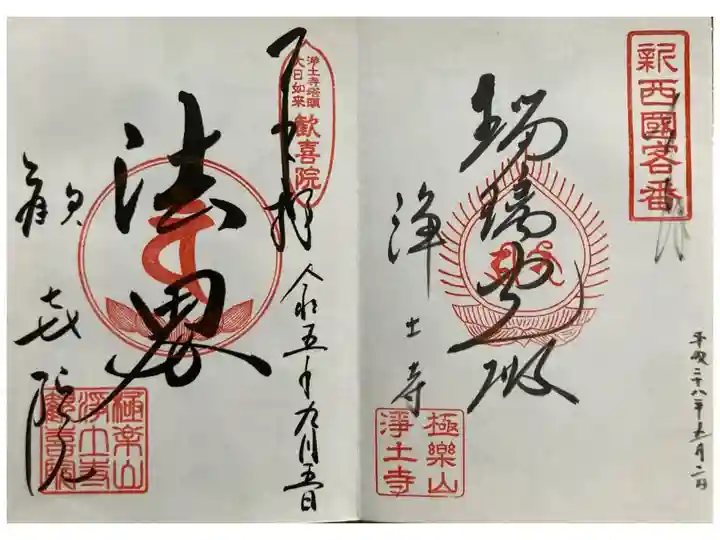 新西國客番
奉拝
平成二十八年五月二日
瑠璃光殿
浄土寺
極樂山
淨土寺
浄土寺塔頭
大日如来
歓喜院
奉拝
令和五年九月五日
法界
歓喜院
極楽山
浄土寺
歓喜院